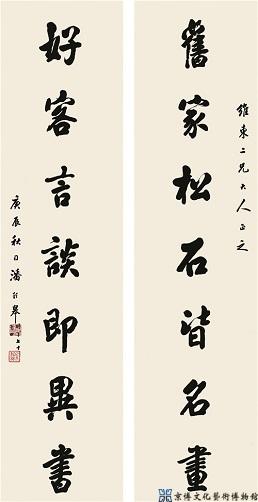 維東二兄大人正之
舊家松石皆名畫
好客言談即異書
庚辰秋日潘齡皋
時年七十
京博文化藝術博物館